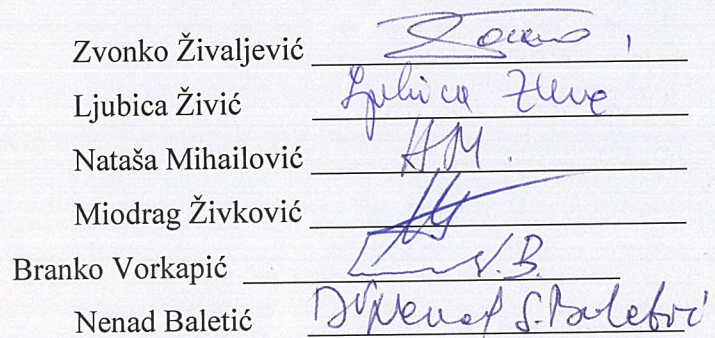 Zvonko Živaljević
Ljubica Živić Ljubica Živić
Nataša Mihailović H.M.
Miodrag Živković
Branko Vorkapić V.B.
Nenad Baletić Dr Nenad S. Baletić